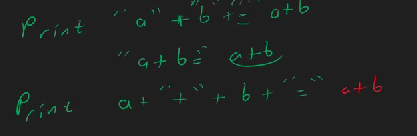 Print "a" + "b" + "=" a+b
"a+b=" a+b
Print a + "+" + b + "=" a+b